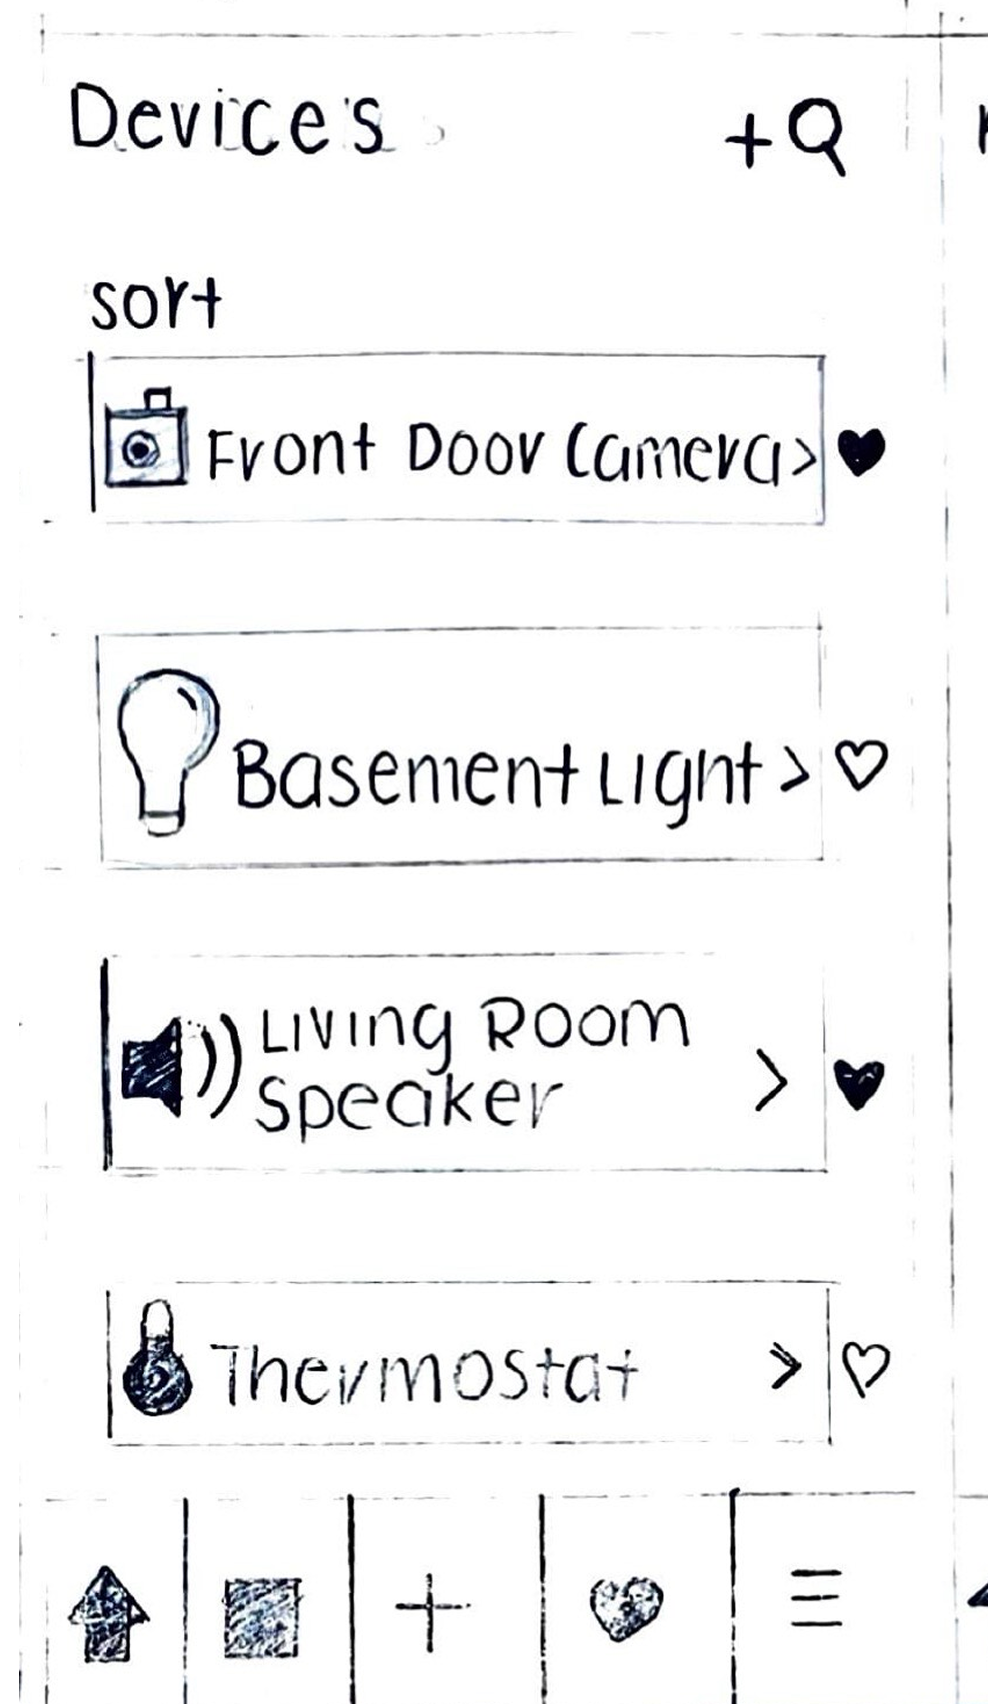 Devices
+
sort
Front Door Camera >
Basement Light >
Living Room
Speaker
>
Thermostat >
+